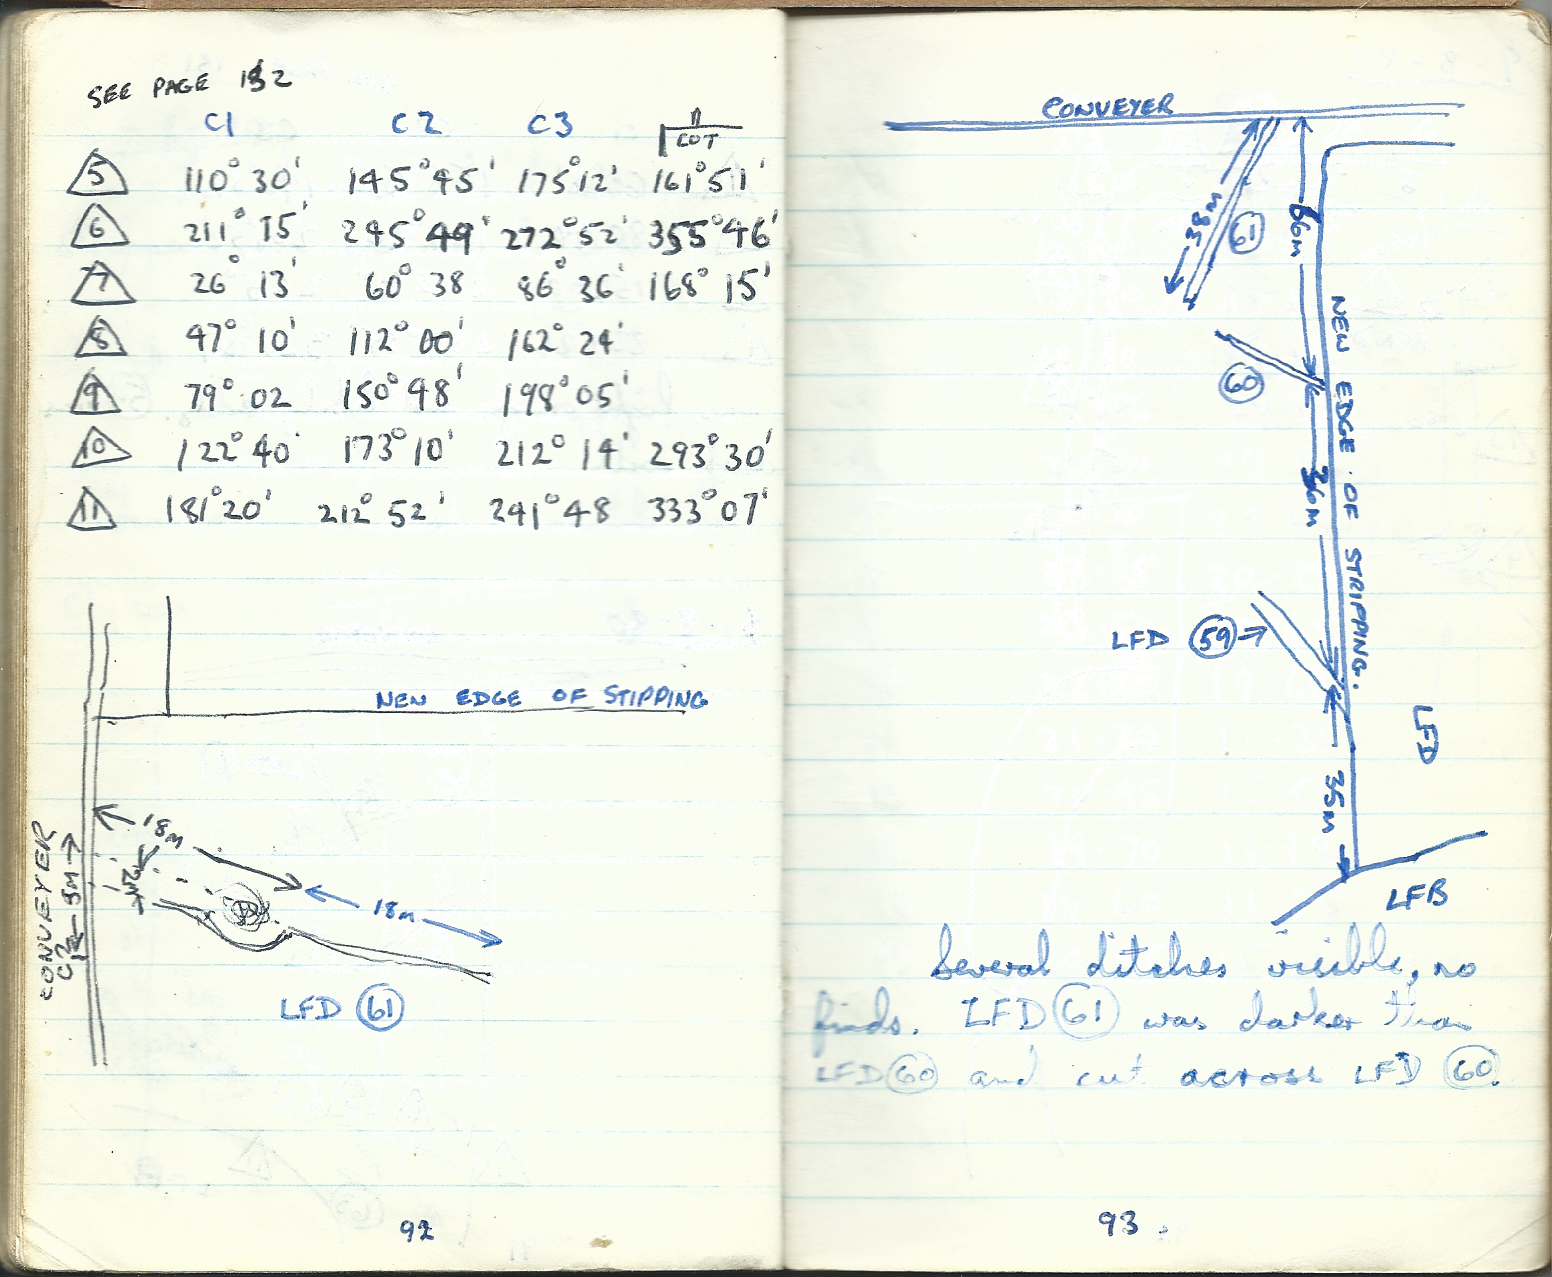 SEE PAGE 132
C1 C2 C3 COT
5 110° 30' 145° 45' 175° 12' 161° 51'
6 211° 15' 245° 49' 272° 52' 355° 46'
7 26° 13' 60° 38 86° 36' 168° 15'
8 47° 10' 112° 00' 162° 24'
9 79° 02 150° 48' 198° 05'
10 122° 40' 173° 10' 212° 14' 293° 30'
11 181° 20' 212° 52' 241° 48 333° 07'
NEW EDGE OF STIPPING
CONVEYER
18m
18m
LFD 61
92
CONVEYER
38m
61
66m
60
NEW EDGE OF STRIPPING.
36m
LFD 59
LFD
35m
LFB
Several ditches visible, no
finds. LFD 61 was darker than
LFD 60 and cut across LFD 60.
93